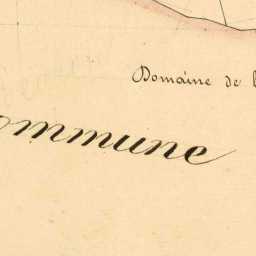 Domaine de l
ommune